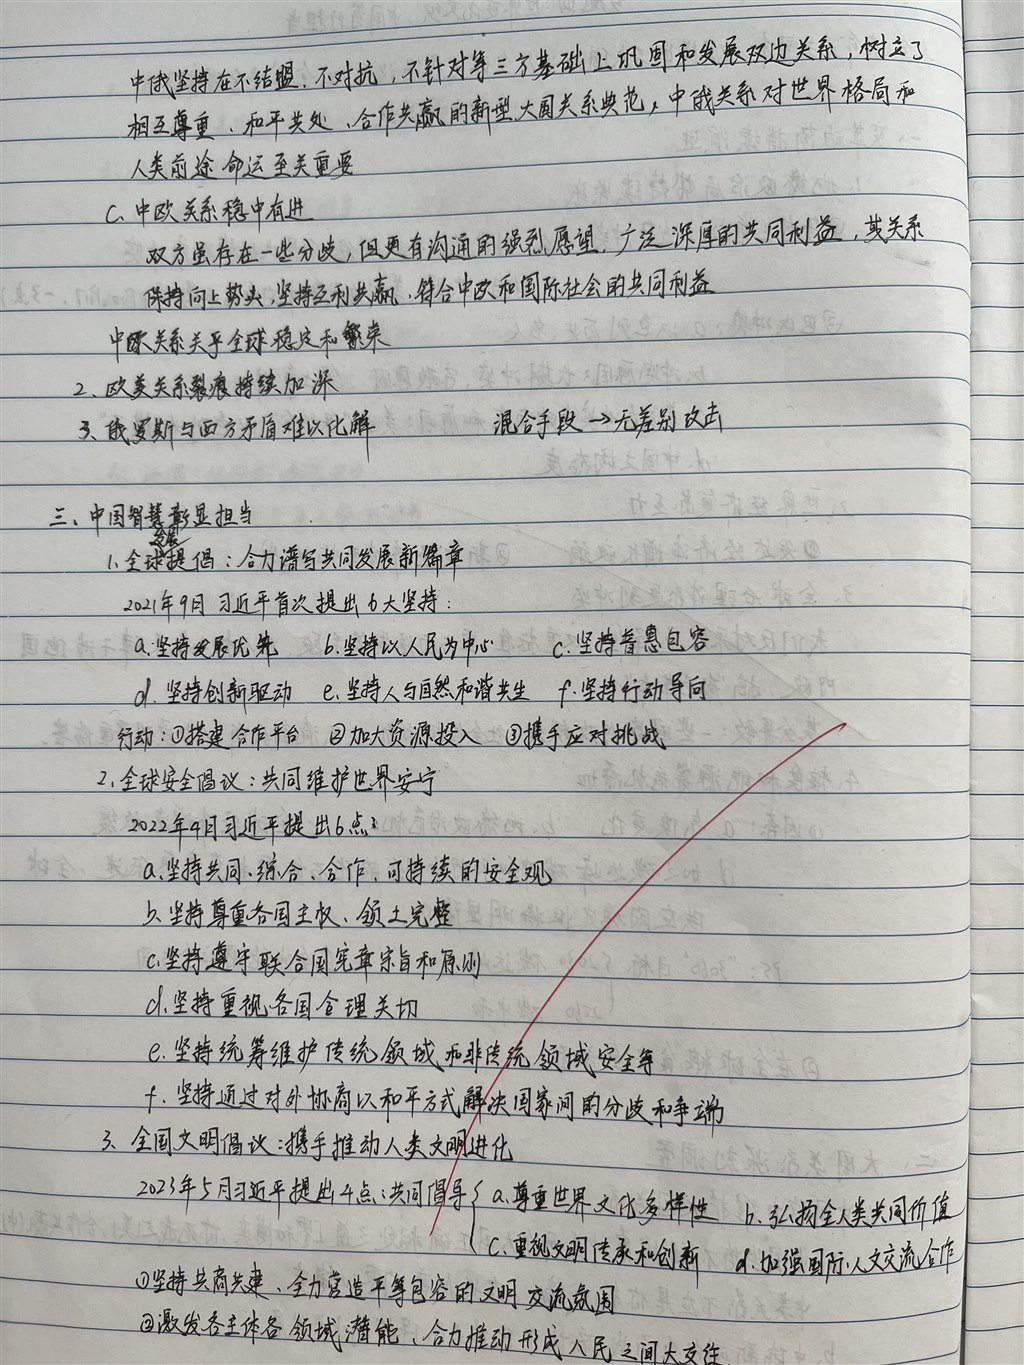 中俄坚持在不结盟、不对抗、不针对等三方基础上巩固和发展双边关系，树立了
相互尊重、和平共处、合作共赢的新型大国关系典范，中俄关系对世界格局和
人类前途命运至关重要
C. 中欧关系稳中有进
双方虽存在一些分歧，但更有沟通的强烈愿望，广泛深厚的共同利益，其关系
保持向上势头，坚持互利共赢，符合中欧和国际社会的共同利益
中欧关系关乎全球稳定和繁荣
2. 欧美关系裂痕持续加深
3、俄罗斯与西方矛盾难以化解 混合手段→无差别攻击
三、中国智慧彰显担当
1. 全球发展提倡：合力谱写共同发展新篇章
2021年9月习近平首次提出6大坚持：
a. 坚持发展优先 b. 坚持以人民为中心 c. 坚持普惠包容
d. 坚持创新驱动 e. 坚持人与自然和谐共生 f. 坚持行动导向
行动：①搭建合作平台 ②加大资源投入 ③携手应对挑战
2. 全球安全倡议：共同维护世界安宁
2022年4月习近平提出6点：
a. 坚持共同、综合、合作、可持续的安全观
b. 坚持尊重各国主权、领土完整
c. 坚持遵守联合国宪章宗旨和原则
d. 坚持重视各国合理关切
e. 坚持统筹维护传统领域和非传统领域安全等
f. 坚持通过对外协商以和平方式解决国家间的分歧和争端
3. 全国文明倡议：携手推动人类文明进化
2023年5月习近平提出4点：共同倡导{ a. 尊重世界文化多样性 b. 弘扬全人类共同价值
c. 重视文明传承和创新 d. 加强国际人文交流合作
①坚持共商共建、全力营造平等包容的文明交流氛围
②激发各主体各领域潜能、合力推动形成人民之间大交往